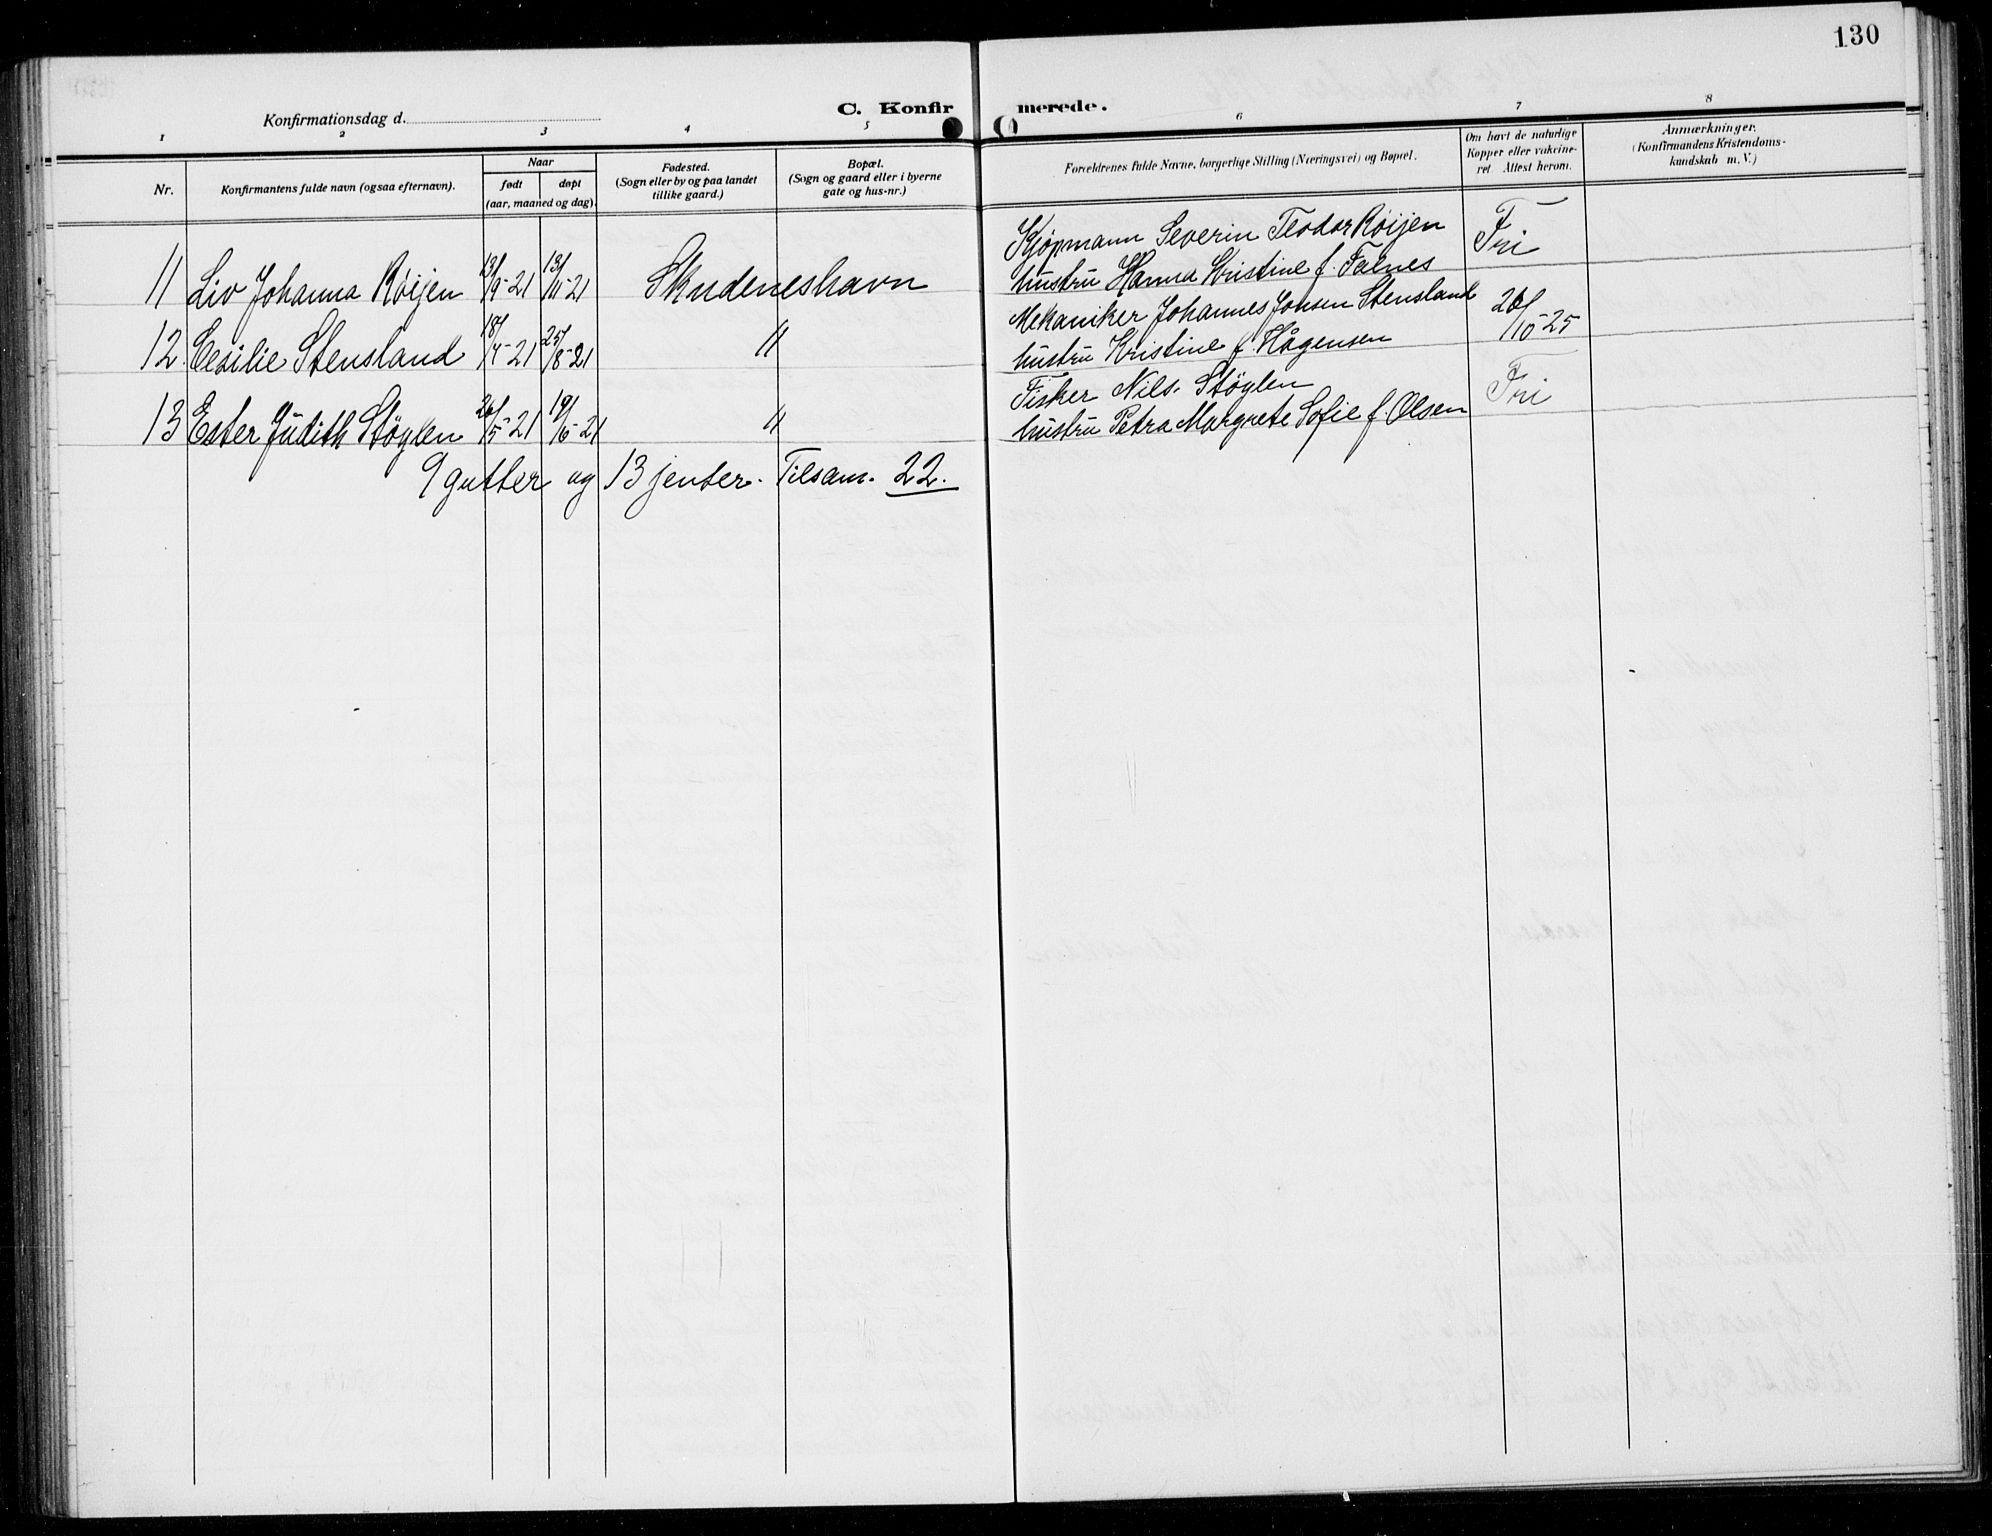 130
C. Konfirmerede.
Konfirmationsdag d.
1 2 3 4 5 6 7 8
Nr.
Konfirmantens fulde navn (ogsaa efternavn).
Naar
født døpt
(aar, maaned og dag).
Fødested.
(Sogn eller by og paa landet
tillike gaard.)
Bopæl.
(Sogn og gaard eller i byerne
gate og hus-nr.)
Forældrenes fulde Navne, borgerlige Stilling (Næringsvei) og Bopæl.
Om havt de naturlige
Kopper eller vakcine-
ret. Attest herom.
Anmærkninger.
(Konfirmandens Kristendoms-
kundskab m. V.)
Kjøpmann Severin Teodor Røijen Fri
11 Liv Johanna Røijen 13/9-21 13/11-21 Skudeneshavn hustru Hanna Kristine f. Falnes
Mekaniker Johannes Jonsen Stensland 26/10-25
12. Cesilie Stensland 18/4-21 25/8-21 " hustru Kristine f. Hågensen
Fisker Nils Støylen Fri
13 Ester Judith Støylen 26/5-21 19/6-21 " hustru Petra Margrete Sofie f. Olsen
9 gutter og 13 jenter. Tilsam. 22.